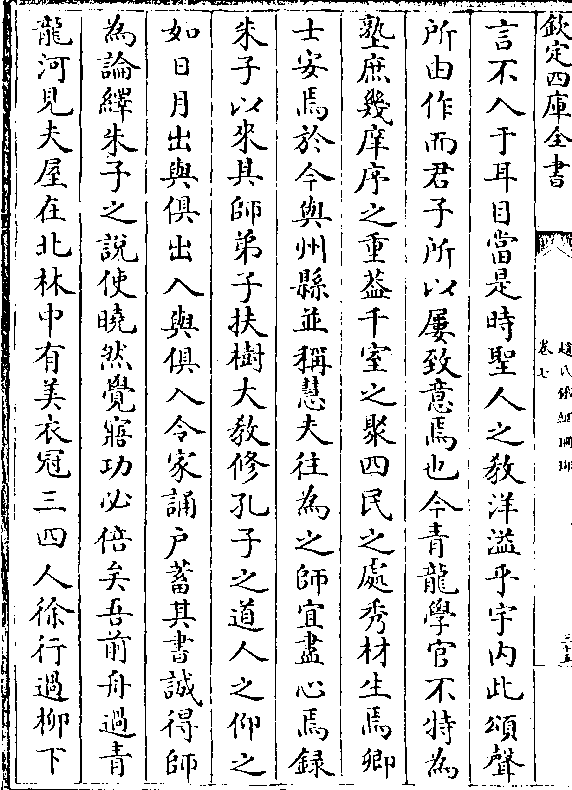 欽定四庫全書
趙氏鐵網珊瑚
卷七
三十五
言不入于耳目當是時聖人之教洋溢乎宇内此頌聲
所由作而君子所以屢致意焉也今青龍學官不特為
塾庶幾庠序之重葢千室之聚四民之處秀材生焉卿
士安焉於今與州縣並稱慧夫往為之師宜盡心焉録
朱子以來其師弟子扶樹大教修孔子之道人之仰之
如日月出與俱出入與俱入令家誦户蓄其書誠得師
為論繹朱子之説使曉然覺寤功必倍矣吾前舟過青
龍河見夫屋在北林中有美衣冠三四人徐行過柳下